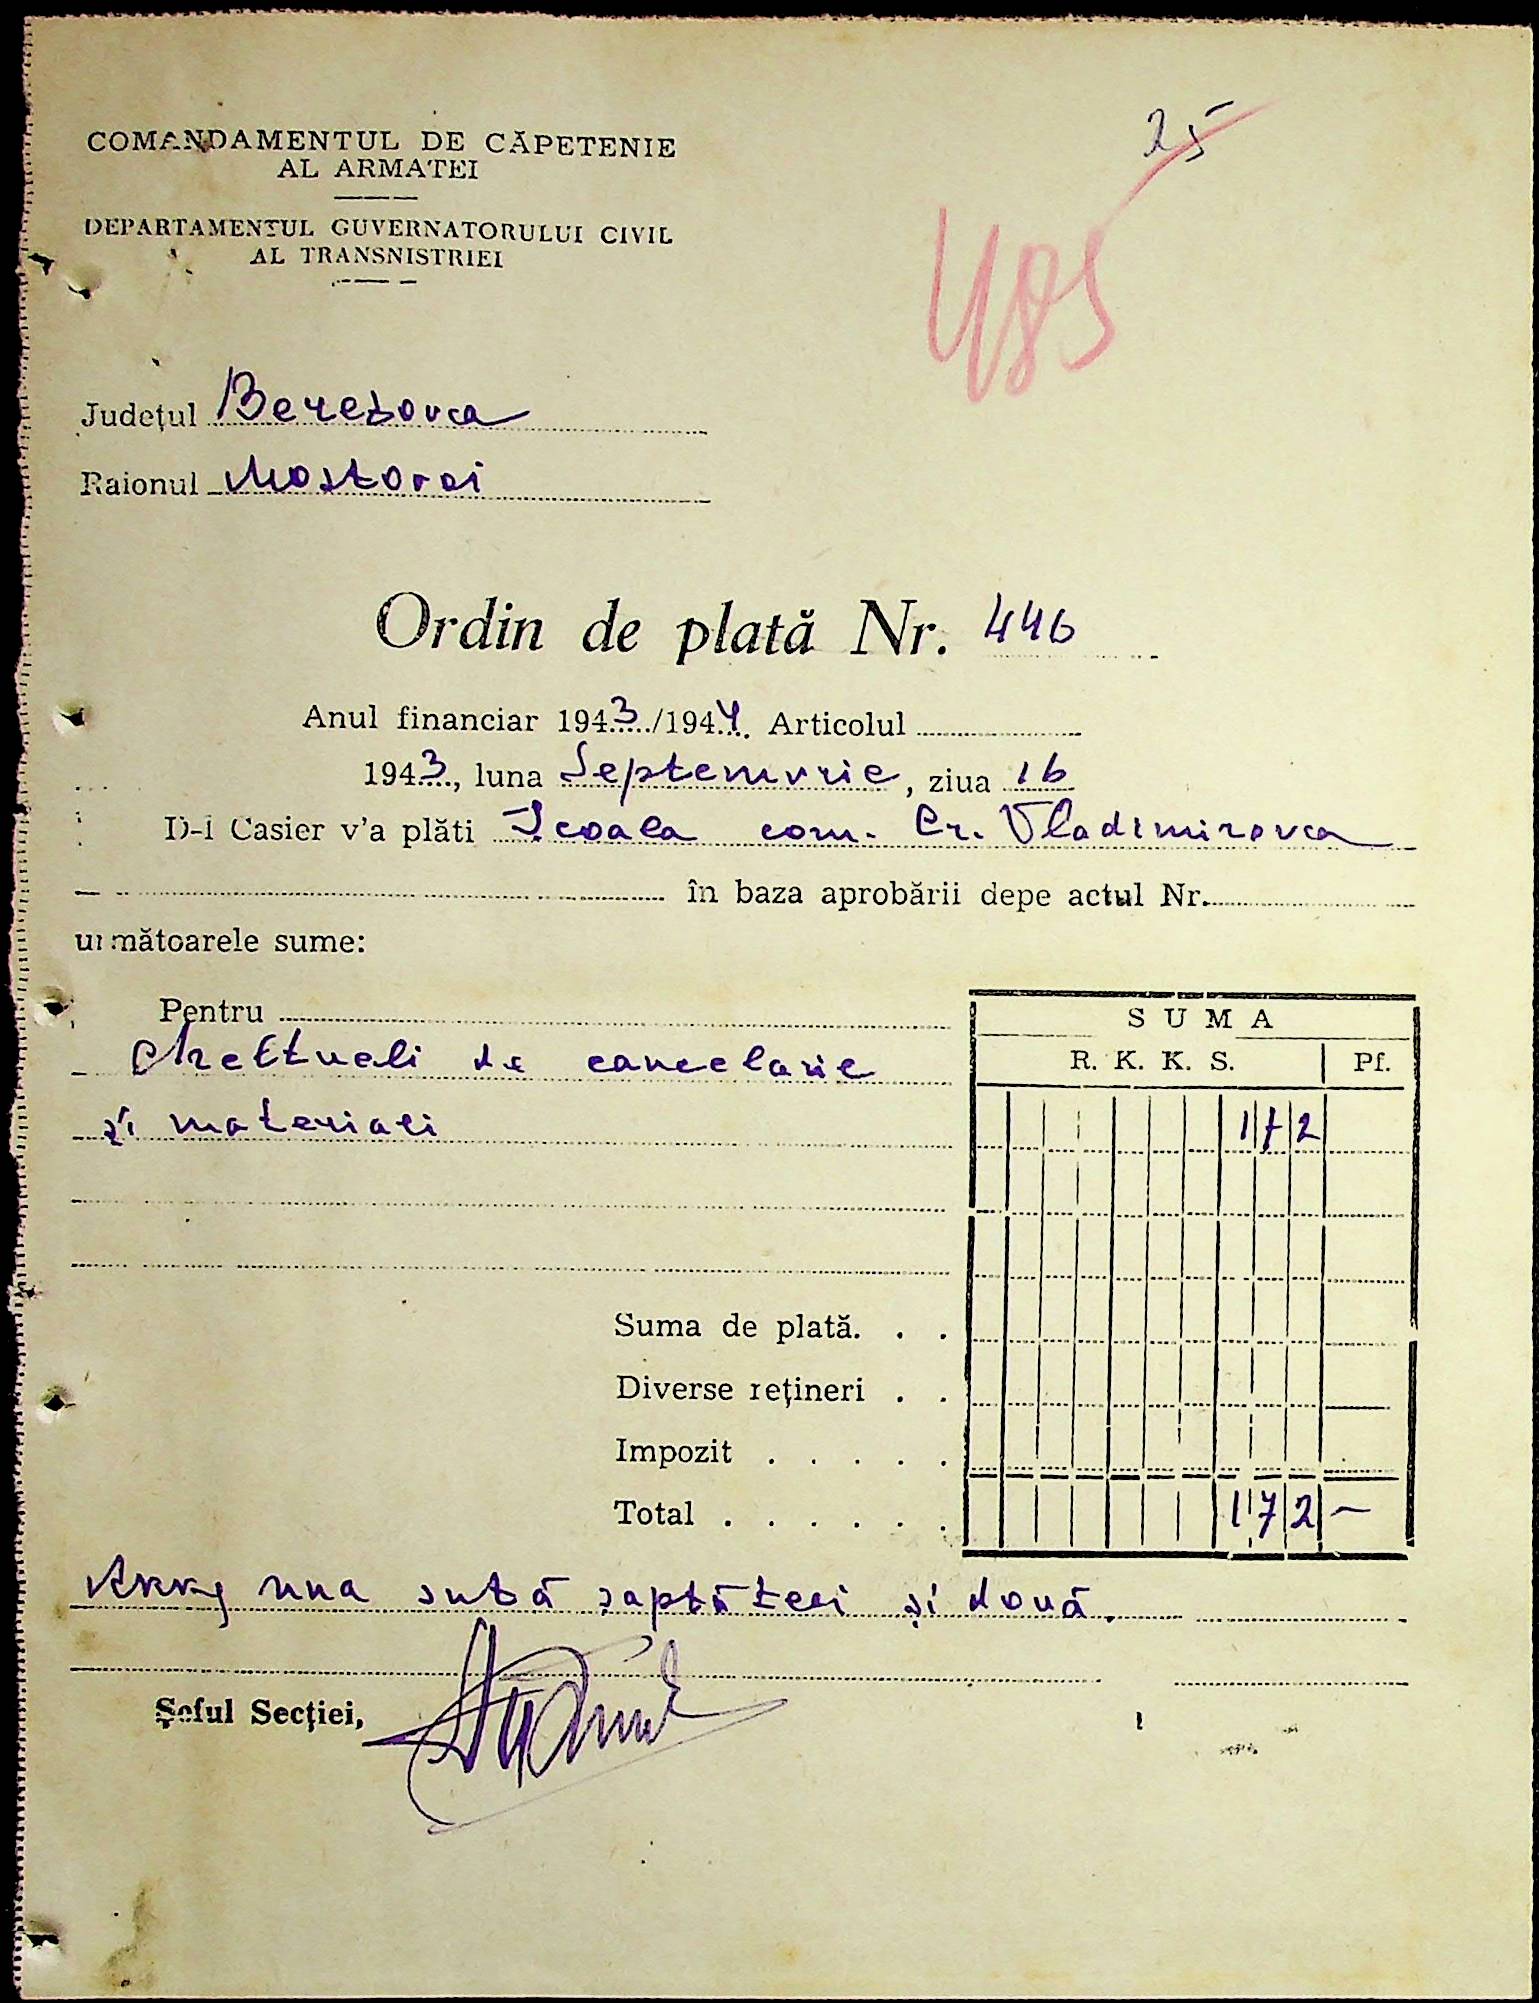 25
COMANDAMENTUL DE CĂPETENIE
AL ARMATEI
485
DEPARTAMENTUL GUVERNATORULUI CIVIL
AL TRANSNISTRIEI
Județul Berezovca
Raionul Mostovoi
Ordin de plată Nr. 446
Anul financiar 1943/1944. Articolul
1943, luna Septemvrie, ziua 16
D-l Casier v'a plăti Școala com. Cr. Vladimirovca
în baza aprobării depe actul Nr.
următoarele sume:
Pentru
SUMA
Cheltueli de cancelarie
R. K. K. S. Pf.
și materiali 172
Suma de plată. . .
Diverse rețineri . .
Impozit . . . . .
Total . . . . . . 172 —
una sută șaptezeci și două.
Șeful Secției,